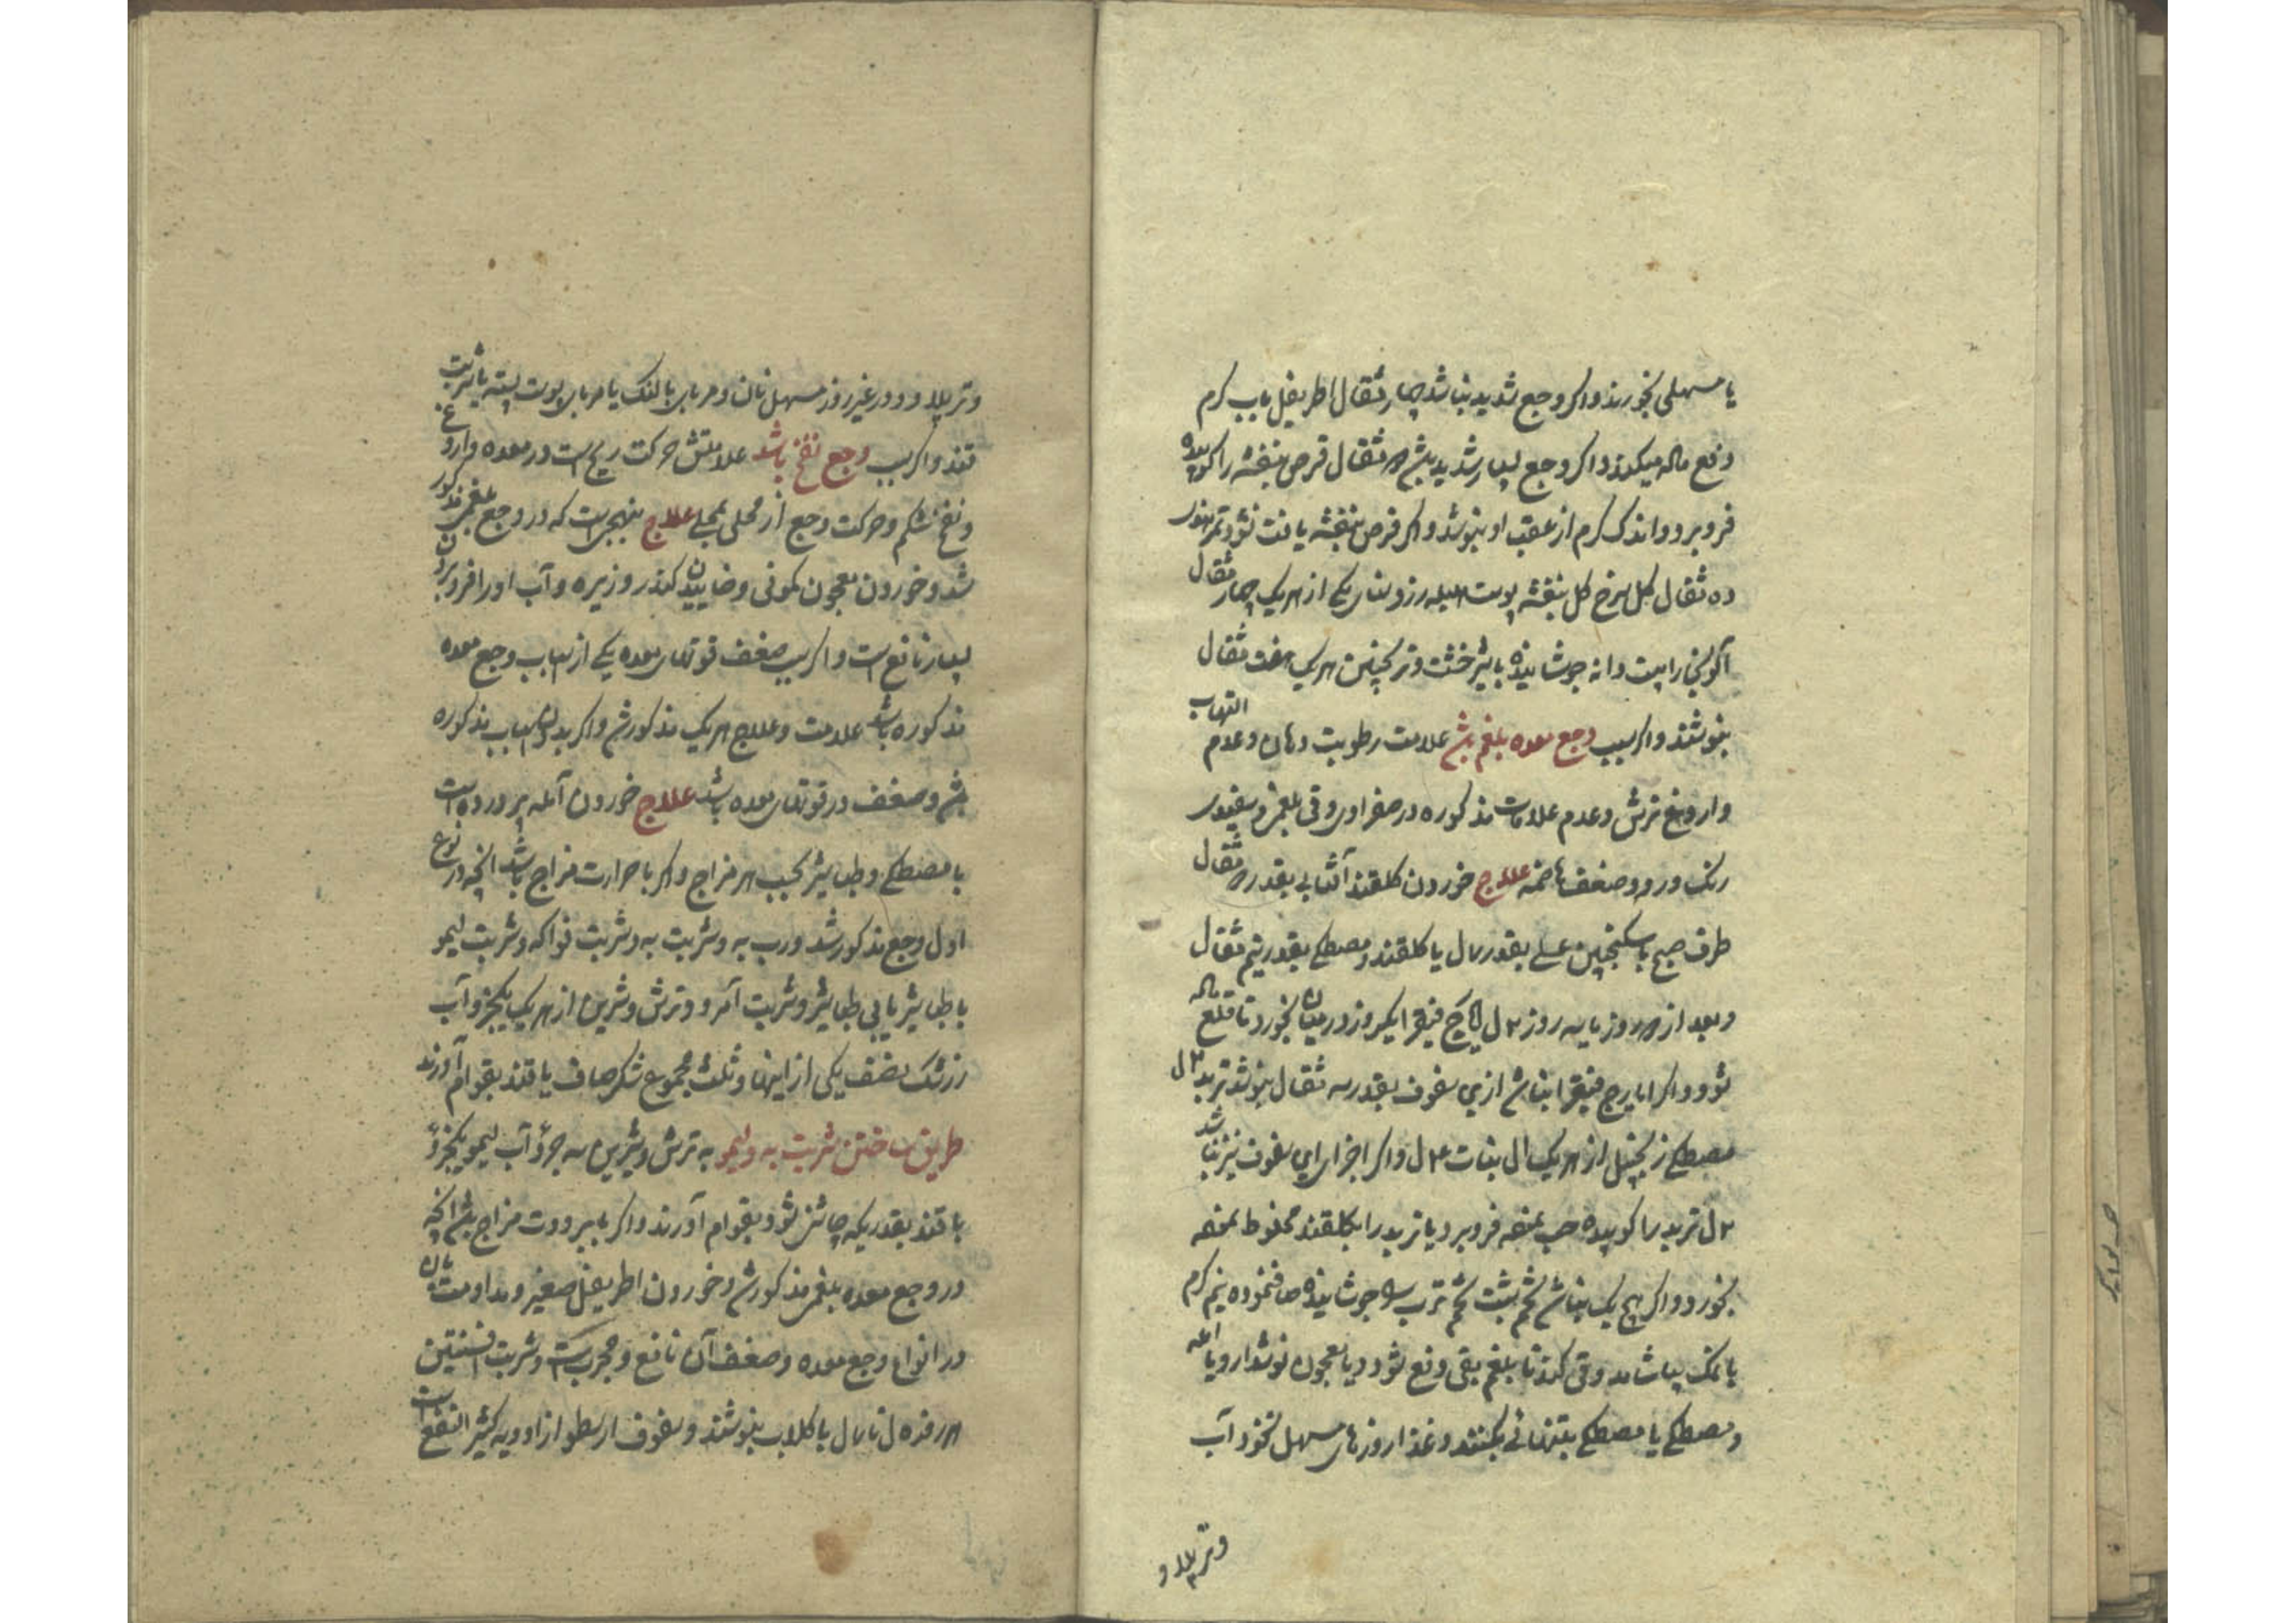 یا مسهلی بخورند و اکر وجع شدید نباشد چهار مثقال اطریفل باب کرم
دفع ماده میکند و اکر وجع بسیار شدید باشد مثقال قرص بنفشه را کوبیده
فرو برد و اندک کرم از عقب او بنوشد و اکر قرص بنفشه یافت نشود تمرهندی
ده مثقال کل سرخ کل بنفشه پوست هلیله زرد سنای مکی از هر یک چهار مثقال
آلوی بخارا بیست دانه جوشانیده با شیرخشت و ترنجبین هر یک هفت مثقال
بنوشند و اکر سبب وجع معده بلغم باشد علامت رطوبت دهان و عدم التهاب
و اروغ ترش و عدم علامات مذکوره در صفراوی و قی بلغمی و سفیدی
رنک و رو و ضعف هاضمه علاج خوردن کلقند آفتابی بقدر مثقال
طرف صبح با سکنجبین عسلی بقدر یا کلقند و مصطکی بقدر نیم مثقال
و بعد از روز یا سه روز ایارج فیقرا یکروز در میان بخورد تا قلع ماده
شود و اکر ایارج فیقرا نباشد ازین سفوف بقدر سه مثقال بنوشد تربد
مصطکی زنجبیل از هر یک نبات و اکر اجزای این سفوف نیز نباشد
تربد را کوبیده حب نموده فرو برد یا تربد را بکلقند مخلوط نموده
بخورد و اکر هیچ یک نباشد تخم شبت تخم ترب را جوشانیده صاف نموده نیم کرم
با نمک بیاشامد و قی کند تا بلغم بقی دفع شود و یا معجون نوشدارو یا آمله
و مصطکی یا مصطکی بتنهائی بکنند و غذا روزهای مسهل نخود آب
و تر پلاو
و تر پلاو و در غیر روز مسهل نان و مربای بالنک یا مربای پوست پسته یا شربت
قند و اکر سبب وجع نفخ باشد علامتش حرکت ریح است در معده و اروغ
و نفخ شکم و حرکت وجع از محلی بمحلی علاج بنهجی است که در وجع بلغمی مذکور
شد و خوردن معجون کمونی و خاییدن کندر و زیره و آب او را فرو بردن
بسیار نافع است و اکر سبب ضعف قوتهای معده یکی از اسباب وجع معده
مذکوره باشد علامت و علاج هر یک مذکور شد و اکر بدون اسباب مذکوره
باشد و ضعف در قوتهای معده باشد علاج خوردن آمله پرورده است
با مصطکی و طباشیر بحسب هر مزاج و اکر با حرارت مزاج باشد آنچه در نوع
اول وجع مذکور شد و رب به و شربت به و شربت فواکه و شربت لیمو
با طباشیر یا بی طباشیر و شربت آمرود ترش و شیرین از هر یک یکجزو آب
زرشک نصف یکی از اینها و ثلث مجموع شکر صاف یا قند بقوام آورند
طریق ساختن شربت به و لیمو به ترش و شیرین سه جزو آب لیمو یکجزو
با قند بقدریکه چاشنی شود بقوام آورند و اکر با برودت مزاج باشد آنچه
در وجع معده بلغمی مذکور شد و خوردن اطریفل صغیر و مداومت بان
در انواع وجع معده و ضعف آن نافع و مجرب است و شربت افسنتین
هر روز با کلاب بنوشند و سفوف ارسطو از ادویه کثیر النفع است